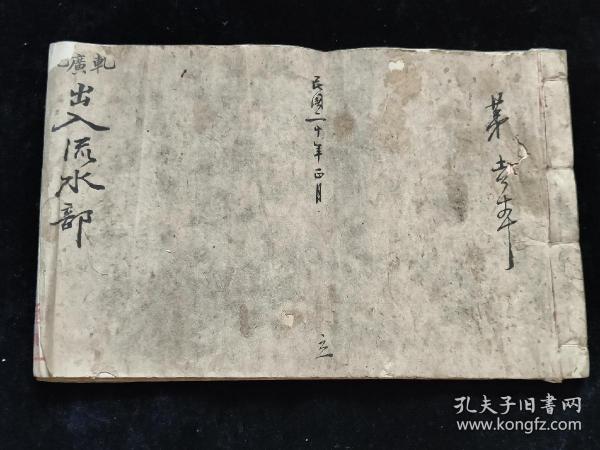 第壹本
民國二十年正月
立
軋廣
出入流水部
孔夫子旧書网
www.kongfz.com